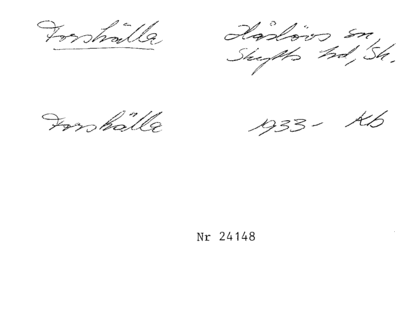 Forshälla Håslövs sn,
Skytts hd, Sk.
Forshälla 1933- Kb
Nr 24148